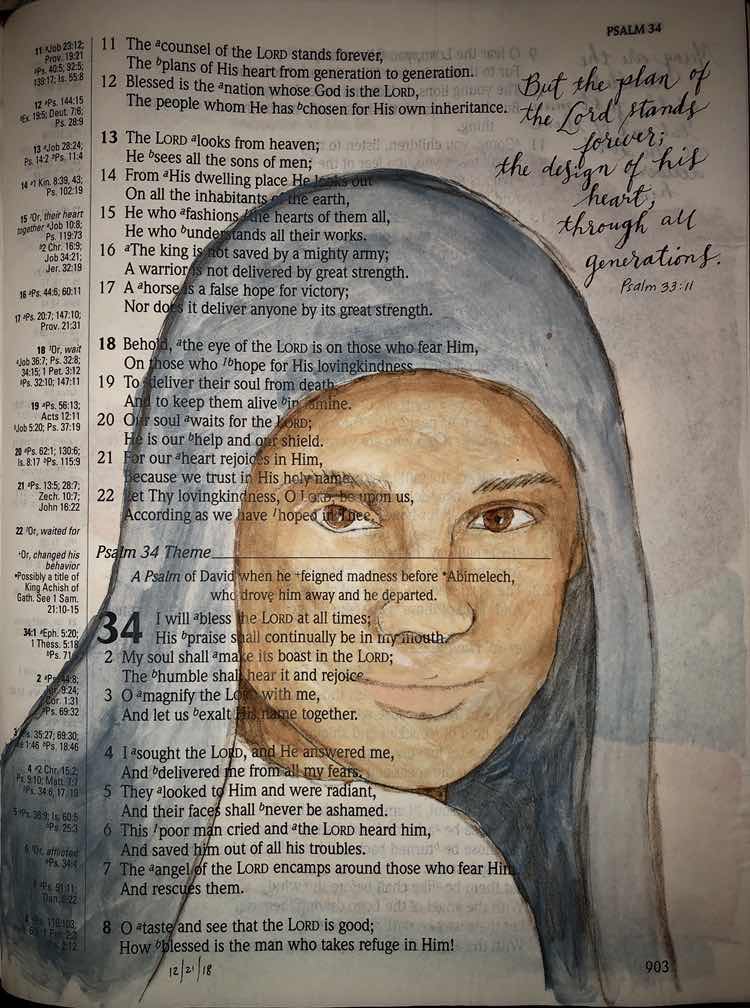 PSALM 34
11 ªJob 23:12;
Prov. 19:21
ᵇPs. 40:5; 92:5;
139:17; Is. 55:8
12 ªPs. 144:15
ᵇEx. 19:5; Deut. 7:6;
Ps. 28:9
13 ªJob 28:24;
Ps. 14:2 ᵇPs. 11:4
14 ª1 Kin. 8:39, 43;
Ps. 102:19
15 ¹Or, their heart
together ªJob 10:8;
Ps. 119:73
ᵇ2 Chr. 16:9;
Job 34:21;
Jer. 32:19
16 ªPs. 44:6; 60:11
17 ªPs. 20:7; 147:10;
Prov. 21:31
18 ¹Or, wait
ªJob 36:7; Ps. 32:8;
34:15; 1 Pet. 3:12
ᵇPs. 32:10; 147:11
19 ªPs. 56:13;
Acts 12:11
ᵇJob 5:20; Ps. 37:19
20 ªPs. 62:1; 130:6;
Is. 8:17 ᵇPs. 115:9
21 ªPs. 13:5; 28:7;
Zech. 10:7;
John 16:22
22 ¹Or, waited for
Or, changed his
behavior
Possibly a title of
King Achish of
Gath. See 1 Sam.
21:10-15
34:1 ªEph. 5:20;
1 Thess. 5:18
ᵇPs. 71
11 The ªcounsel of the LORD stands forever,
The ᵇplans of His heart from generation to generation.
12 Blessed is the ªnation whose God is the LORD,
The people whom He has ᵇchosen for His own inheritance.
13 The LORD ªlooks from heaven;
He ᵇsees all the sons of men;
14 From ªHis dwelling place He looks out
On all the inhabitants of the earth,
15 He who ªfashions ¹the hearts of them all,
He who ᵇunderstands all their works.
16 ªThe king is not saved by a mighty army;
A warrior is not delivered by great strength.
17 A ªhorse is a false hope for victory;
Nor does it deliver anyone by its great strength.
18 Behold, ªthe eye of the LORD is on those who fear Him,
On those who ¹ᵇhope for His lovingkindness,
19 To ªdeliver their soul from death,
And to keep them alive ᵇin famine.
20 Our soul ªwaits for the LORD;
He is our ᵇhelp and our shield.
21 For our ªheart rejoices in Him,
Because we trust in His holy name.
22 Let Thy lovingkindness, O LORD, be upon us,
According as we have ¹hoped in Thee.
Psalm 34 Theme
A Psalm of David when he feigned madness before Abimelech,
who drove him away and he departed.
34 I will ªbless the LORD at all times;
His ᵇpraise shall continually be in my mouth.
2 My soul shall ªmake its boast in the LORD;
The ᵇhumble shall hear it and rejoice.
3 O ªmagnify the LORD with me,
And let us ᵇexalt His name together.
4 I ªsought the LORD, and He answered me,
And ᵇdelivered me from all my fears.
5 They ªlooked to Him and were radiant,
And their faces shall ᵇnever be ashamed.
6 This ¹poor man cried and ªthe LORD heard him,
And saved him out of all his troubles.
7 The ªangel of the LORD encamps around those who fear Him,
And rescues them.
8 O ªtaste and see that the LORD is good;
How ᵇblessed is the man who takes refuge in Him!
But the plan of
the Lord stands
forever;
the design of his
heart,
through all
generations.
Psalm 33:11
12/21/18
903